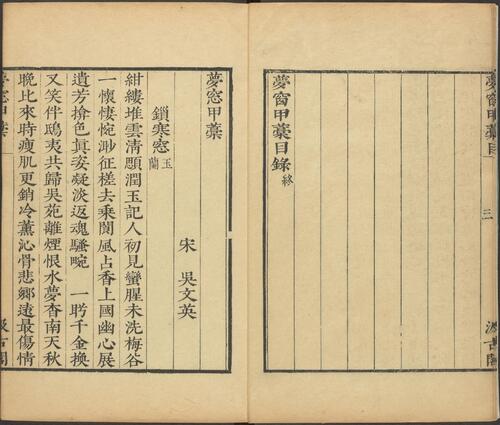 夢窗甲藁目 三 汲古閣
夢窗甲藁目錄終
夢窓甲藁
宋 吳文英
鎖寒窓 玉蘭
紺縷堆雲清顋潤玉記人初見蠻腥未洗梅谷
一懷悽惋渺征槎去乘閬風占香上國幽心展
遺芳揜色眞姿凝淡返魂騷畹 一盻千金換
又笑伴鴟夷共歸吳苑離煙恨水夢杳南天秋
晚比來時瘦肌更銷冷薰沁骨悲鄉遠最傷情
夢窓甲藁 一 汲古閣